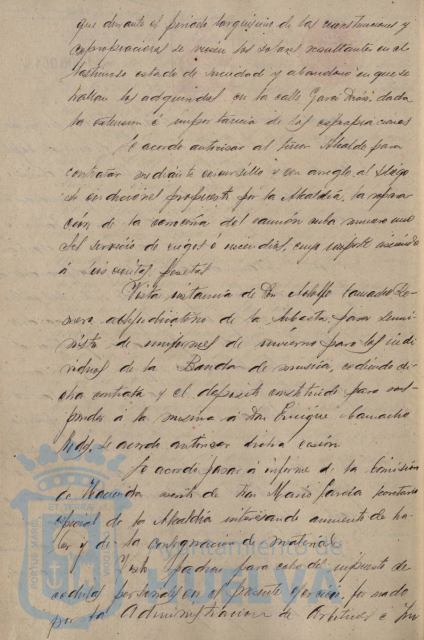 que durante el periodo larguísimo de las construcciones y
expropiaciones se vean los solares resultantes en el
lastimoso estado de suciedad y abandono en que se
hallan los adquiridos en la calle Garci Díaz, dada
la extensión é importancia de las expropiaciones
Se acordó autorizar al Señor Alcalde para
contratar mediante concursillo y con arreglo al pliego
de condiciones propuesto por la Alcaldía, la repara
ción de la carrocería del camión número uno
del servicio de riegos é incendios, cuyo importe asciende
á seiscientas pesetas
Vista instancia de Don Adolfo Camacho Ro
mero adjudicatario de la subasta para sumi
nistro de uniformes de invierno para los indi
viduos de la Banda de música, cediendo di
cha contrata y el depósito constituido para res
ponder á la misma á Don Enrique Camacho
se acordó autorizar dicha cesión
Se acordó pasar á informe de la Comisión
de Hacienda escrito de Don Mario García
de la Alcaldía interesando aumento de ha
ber y de la consignación de material
Visto padrón para cobro del impuesto de
cédulas personales en el presente ejercicio, formado
por la Administración de Arbitrios é Im
Ayuntamiento de
HUELVA